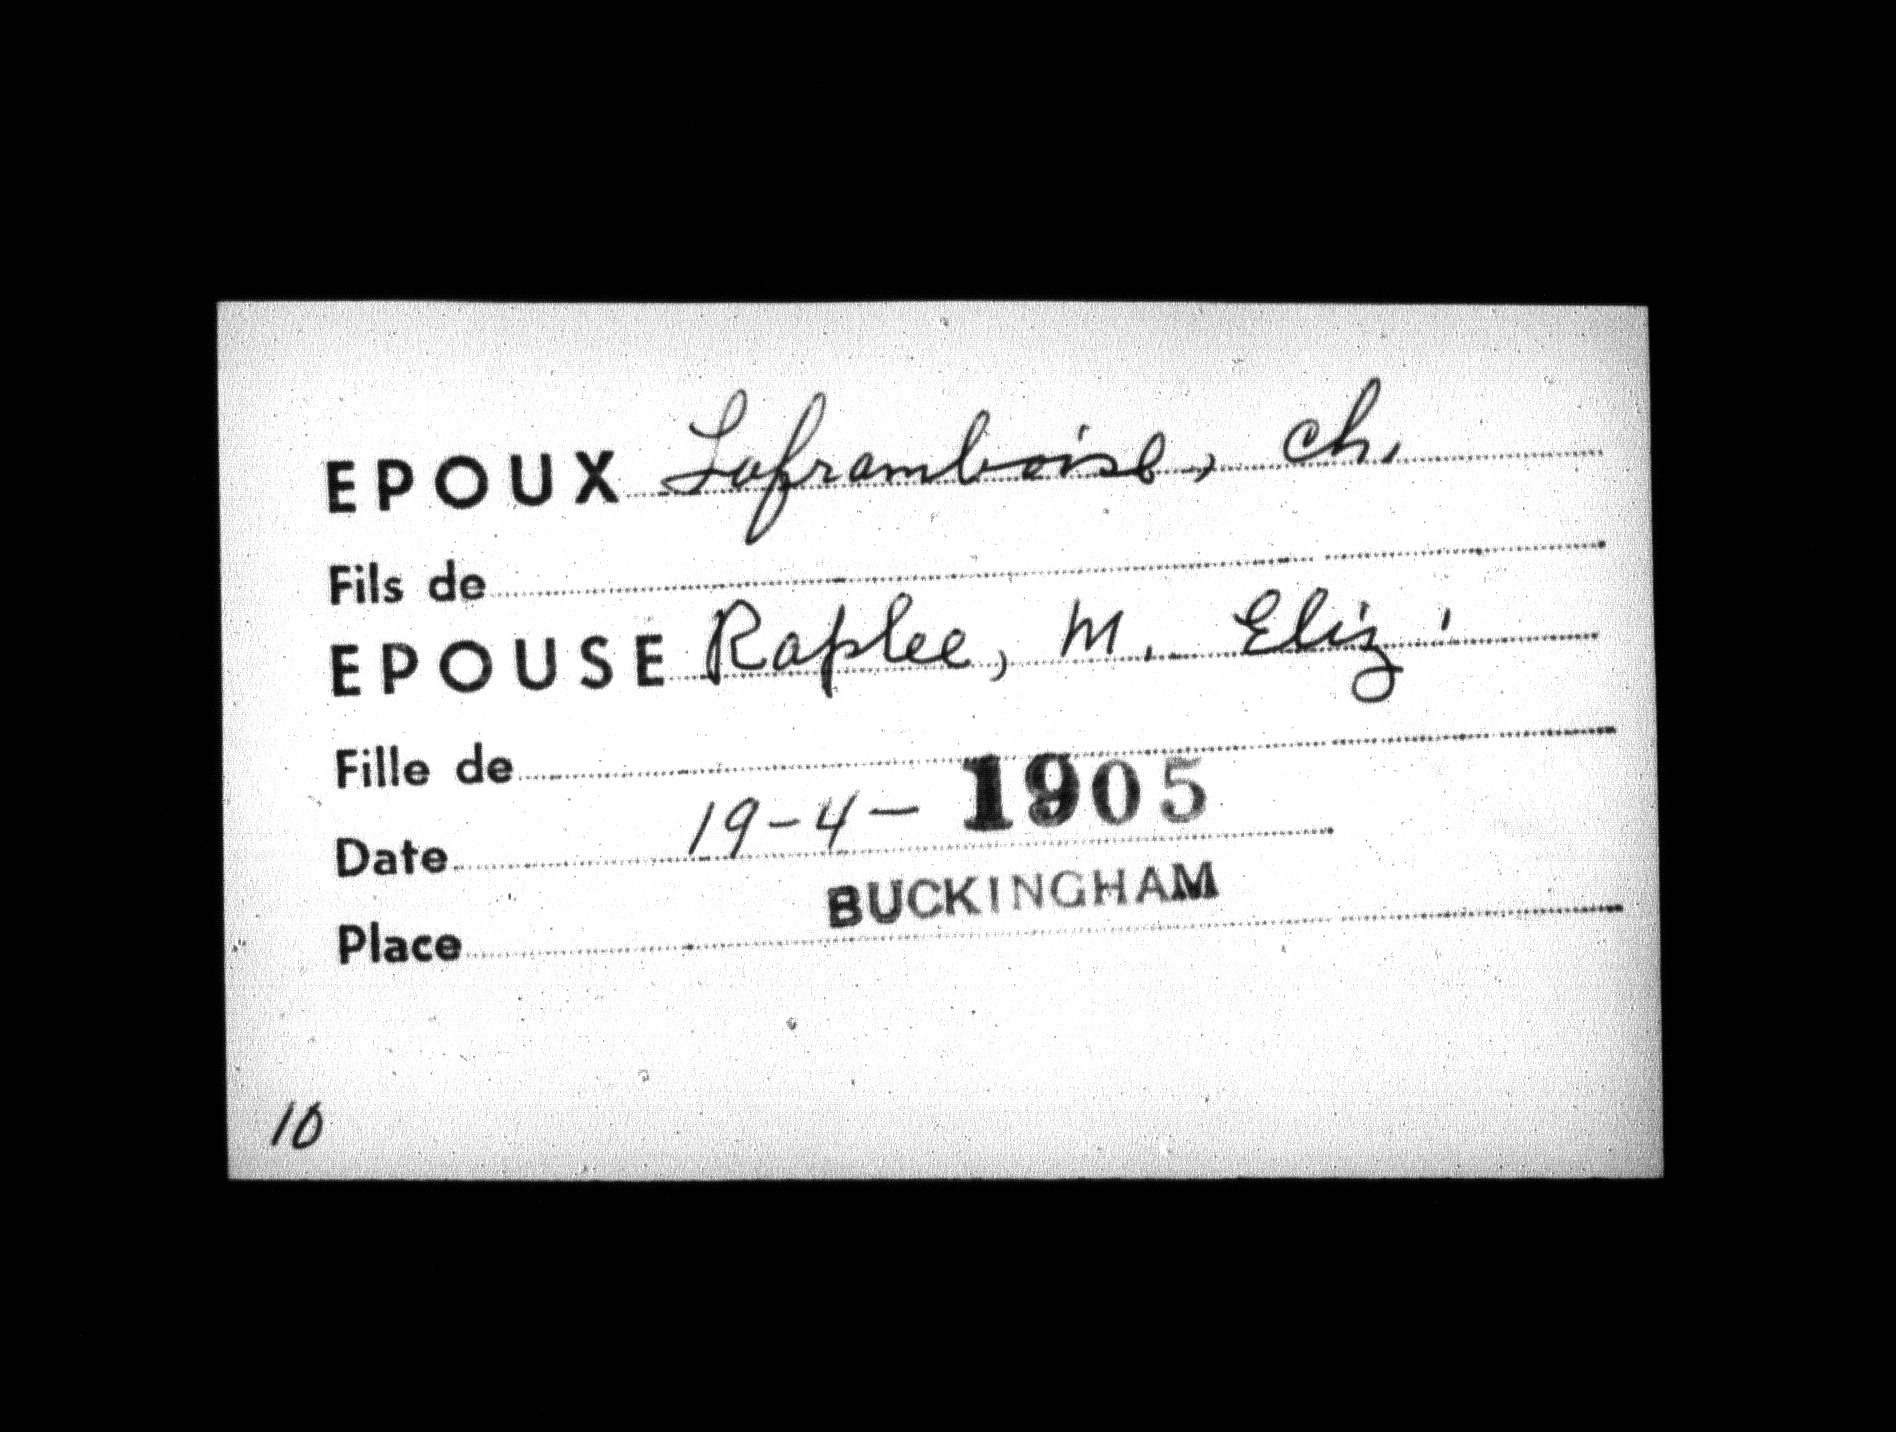 EPOUX Laframboise, Ch.
Fils de
EPOUSE Raplee, M. Eliz.
Fille de
Date 19-4-1905
Place BUCKINGHAM
10